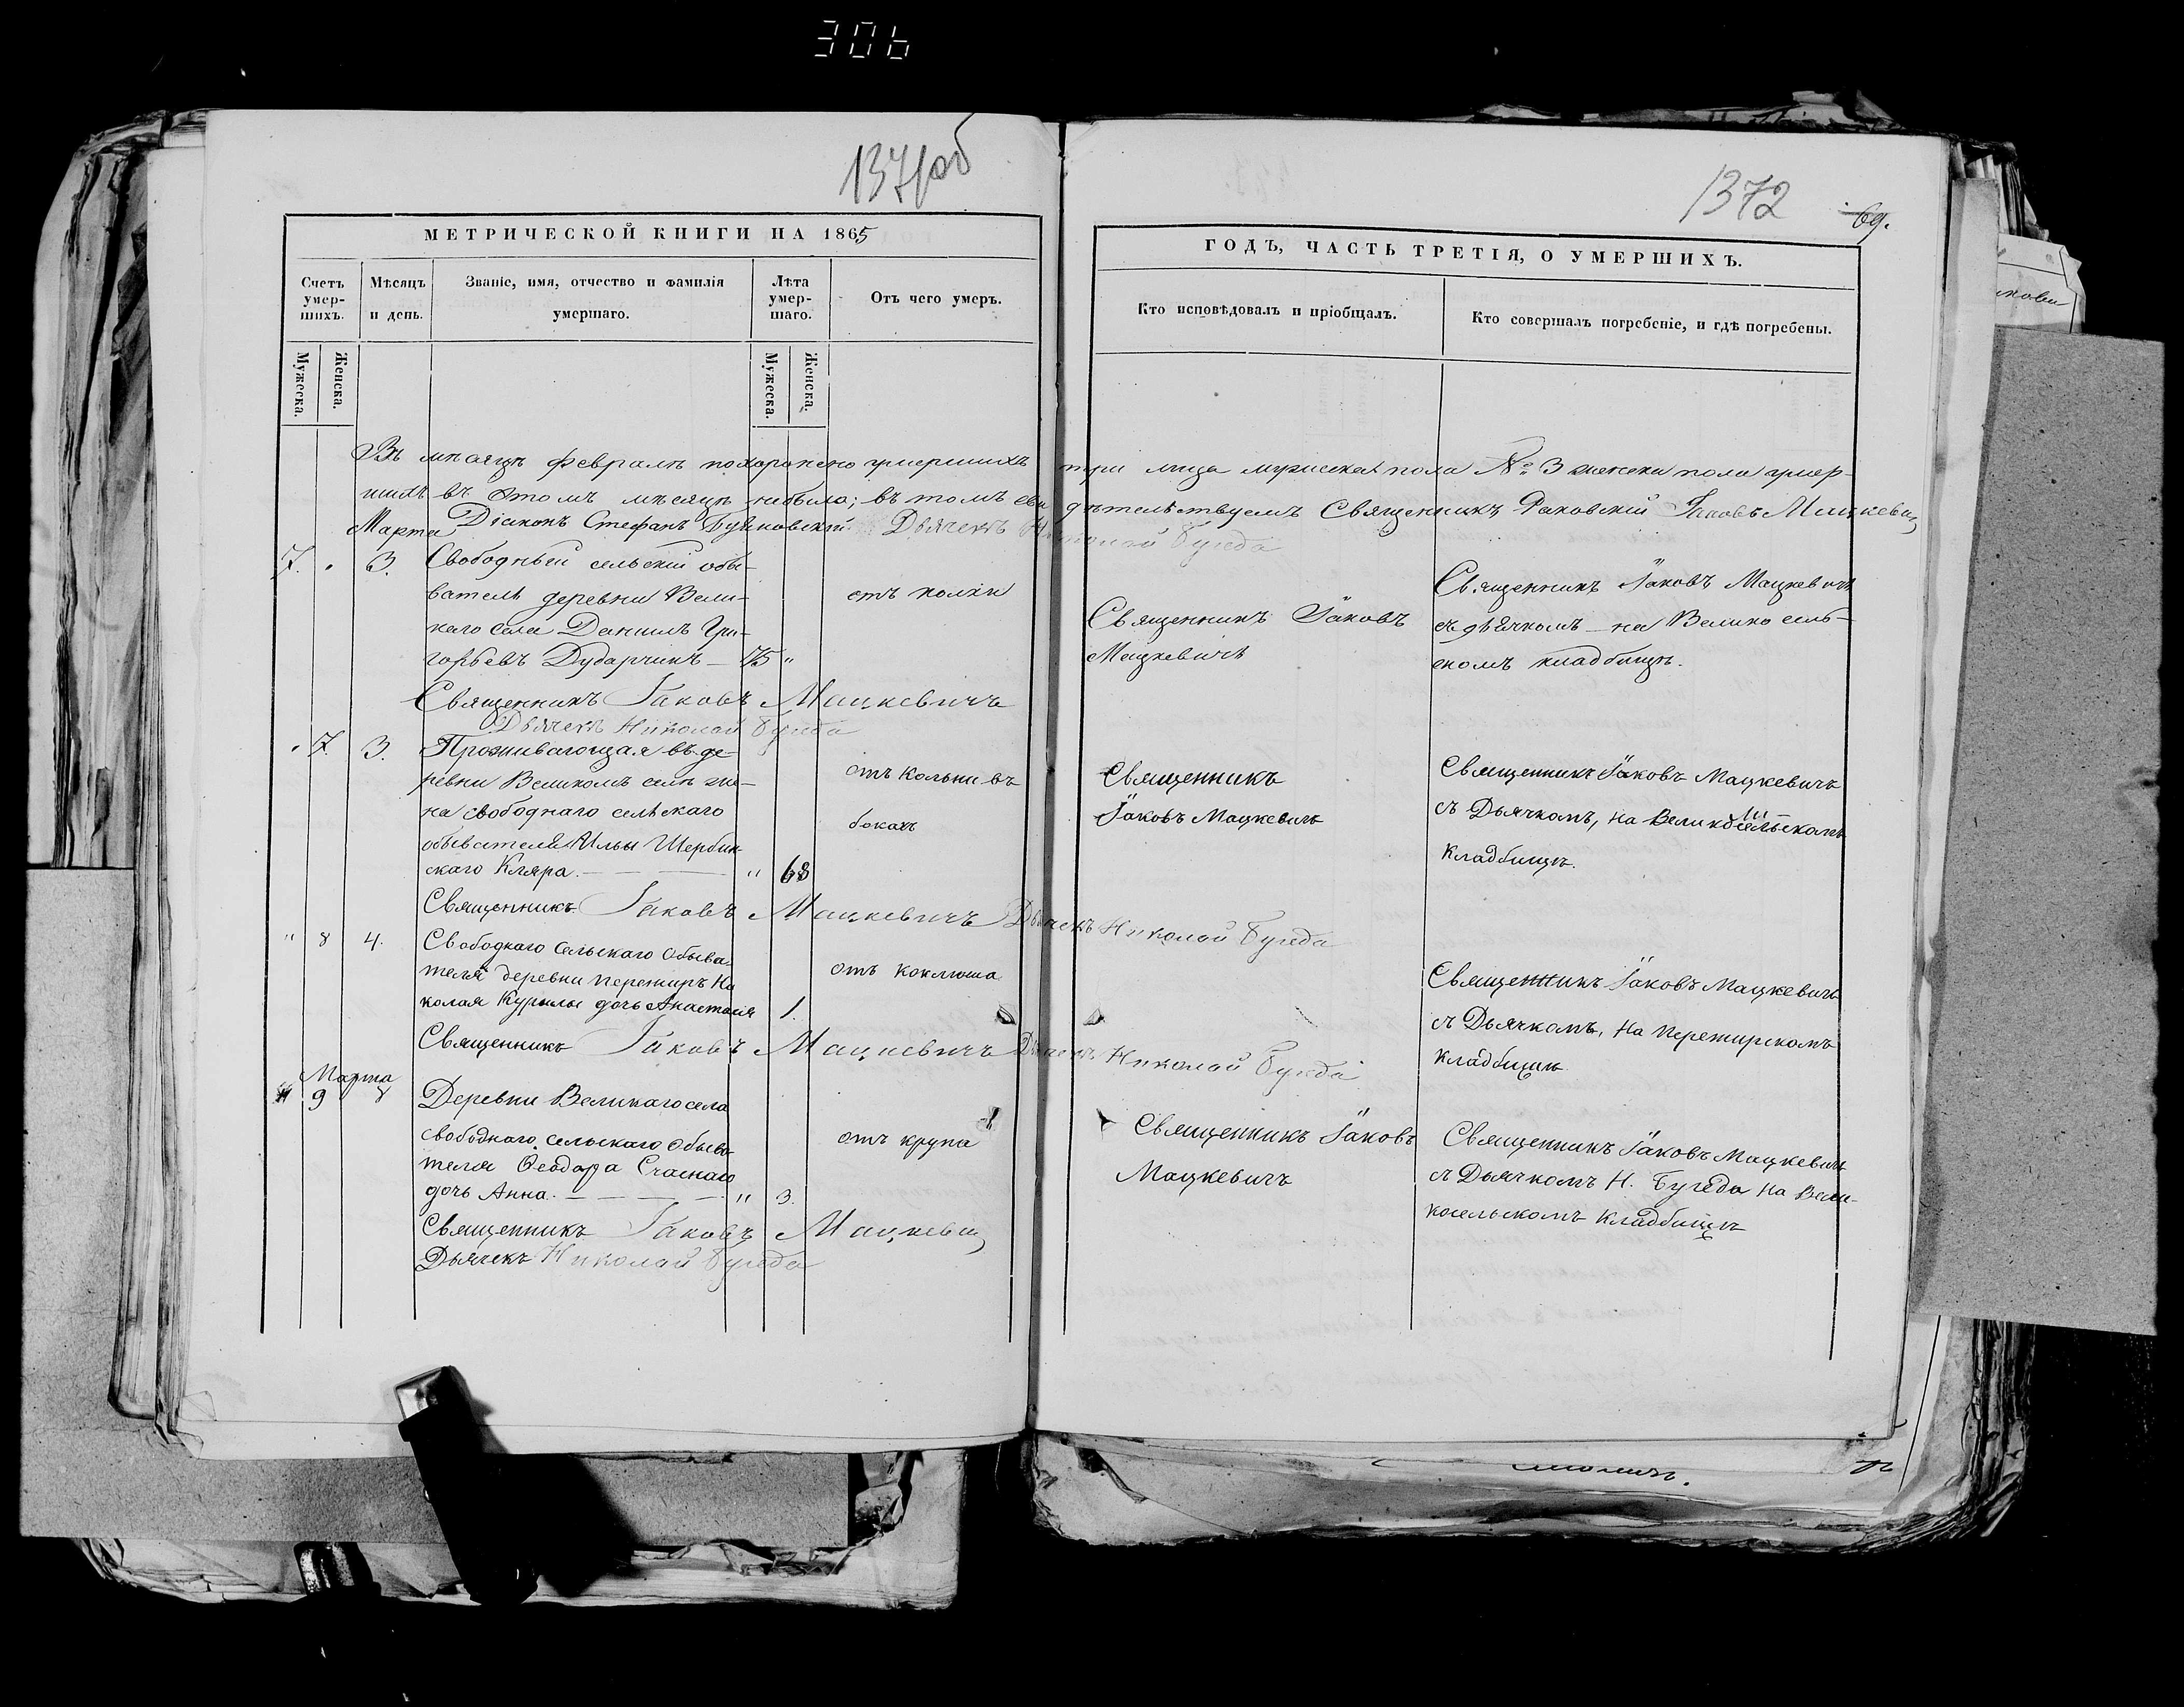 306
1371об
1372
69.
МЕТРИЧЕСКОЙ КНИГИ НА 1865
Счетъ умер-шихъ.
Мѣсяцъ и день.
Званіе, имя, отчество и фамилія умершаго.
Лѣта умер-шаго.
Отъ чего умеръ.
Мужеска.
Женска.
Мужеска.
Женска.
ГОДЪ, ЧАСТЬ ТРЕТІЯ, О УМЕРШИХЪ.
Кто исповѣдовалъ и пріобщалъ.
Кто совершалъ погребеніе, и гдѣ погребены.
Въ мѣсяцѣ февралѣ похоронено умершихъ три лица мужеска пола № 3 женска пола умер-
шихъ въ этомъ мѣсяцѣ небыло; въ томъ свидѣтельствуемъ Священникъ Раковскій Іаковъ Мацкевич
Марта Діаконъ Стефанъ Дьячекъ Николай Бугеда
7. " 3. Свободный сельскій обы-
ватель деревни Вели-
каго села Данилъ Гри-
горьевъ Дударчикъ — 75 "
отъ колки
Священникъ Іаковъ
Мацкевичъ
Священникъ Іаковъ Мацкевичъ
съ дьячкомъ — на Велико сель-
скомъ кладбищѣ.
Священникъ Іаковъ Мацкевичъ
Дьячекъ Николай Бугеда
" 7. 3. Проживающая въ де-
ревни Великомъ селѣ же-
на свободнаго сельскаго
обывателя Ильи Щербин-
скаго Кляра. — " 68
отъ Кольки въ
бокахъ
Священникъ
Іаковъ Мацкевичъ
Священникъ Іаковъ Мацкевичъ
съ Дьячкомъ, на Великосельскомъ
Кладбищѣ.
Священникъ Іаковъ Мацкевичъ Дьячекъ Николай Бугеда
" 8 4. Свободнаго Сельскаго Обыва-
теля деревни Пережиръ Ни
колая Курилы дочь Анастасія 1.
отъ коклюша
Священникъ Іаковъ Мацкевичъ
съ Дьячкомъ, на Пережирскомъ
Кладбищѣ
Священникъ Іаковъ Мацкевичъ Дьячекъ Николай Бугеда
Марта
" 9 8 Деревни Великаго села
свободнаго сельскаго Обыва-
теля Ѳеодора Счаснаго
дочь Анна. — " 3.
отъ крупа
Священникъ Іаковъ
Мацкевичъ
Священникъ Іаковъ Мацкевичъ
съ Дьячкомъ Н. Бугеда на Вели-
косельскомъ Кладбищѣ
Священникъ Іаковъ Мацкевич
Дьячекъ Николай Бугеда